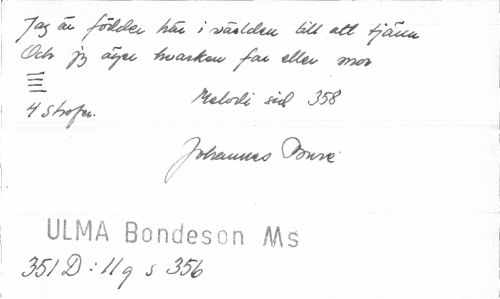 Jag är född här i världen till att tjäna
Och jg äger hvarken far eller mor
4 strofer.
Melodi sid 358
Johannes Bure
ULMA Bondeson Ms
351 D : 11 q s 356